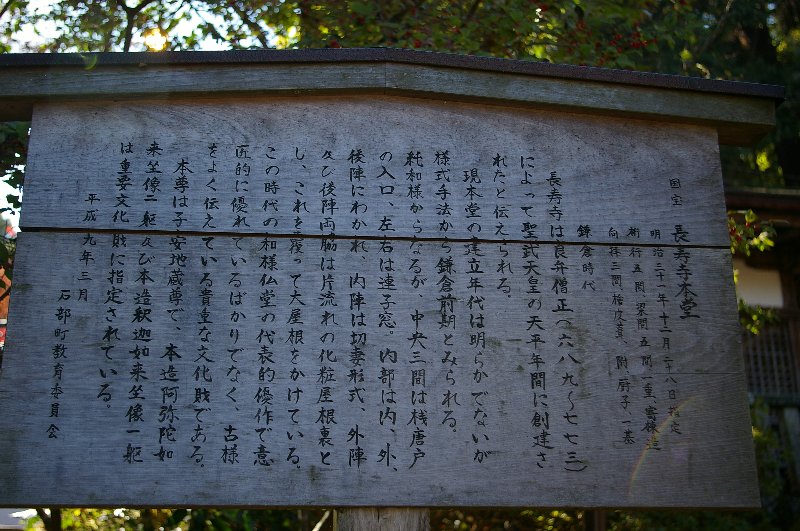 国宝 長寿寺本堂
明治三十一年十二月二十八日指定
桁行五間 梁間五間 一重、寄棟造
向拝三間 桧皮葺 附厨子一基
鎌倉時代
長寿寺は良弁僧正(六八九~七七三)
によって聖武天皇の天平年間に創建さ
れたと伝えられる。
現本堂の建立年代は明らかでないが
様式手法から鎌倉前期とみられる。
純和様からなるが、中央三間は桟唐戸
の入口、左右は連子窓。内部は内、外、
後陣にわかれ、内陣は切妻形式、外陣
及び後陣両脇は片流れの化粧屋根裏と
し、これを覆って大屋根をかけている。
この時代の和様仏堂の代表的優作で意
匠的に優れているばかりでなく、古様
をよく伝えている貴重な文化財である。
本尊は子安地蔵尊で、木造阿弥陀如
来坐像二躯及び木造釈迦如来坐像一躯
は重要文化財に指定されている。
平成九年三月
石部町教育委員会